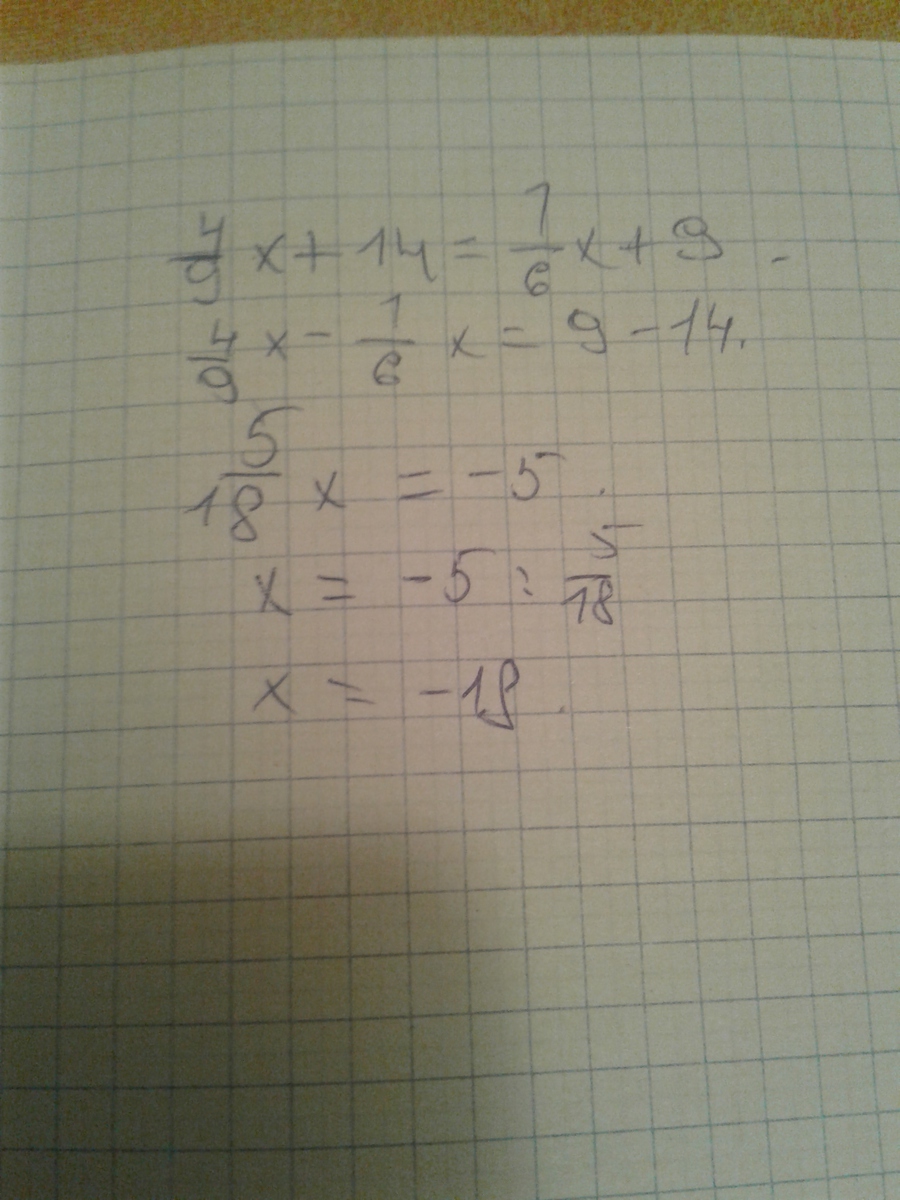 4/9 x + 14 = 1/6 x + 9 .
4/9 x - 1/6 x = 9 - 14.
5/18 x = -5 .
x = -5 : 5/18
x = -18 .